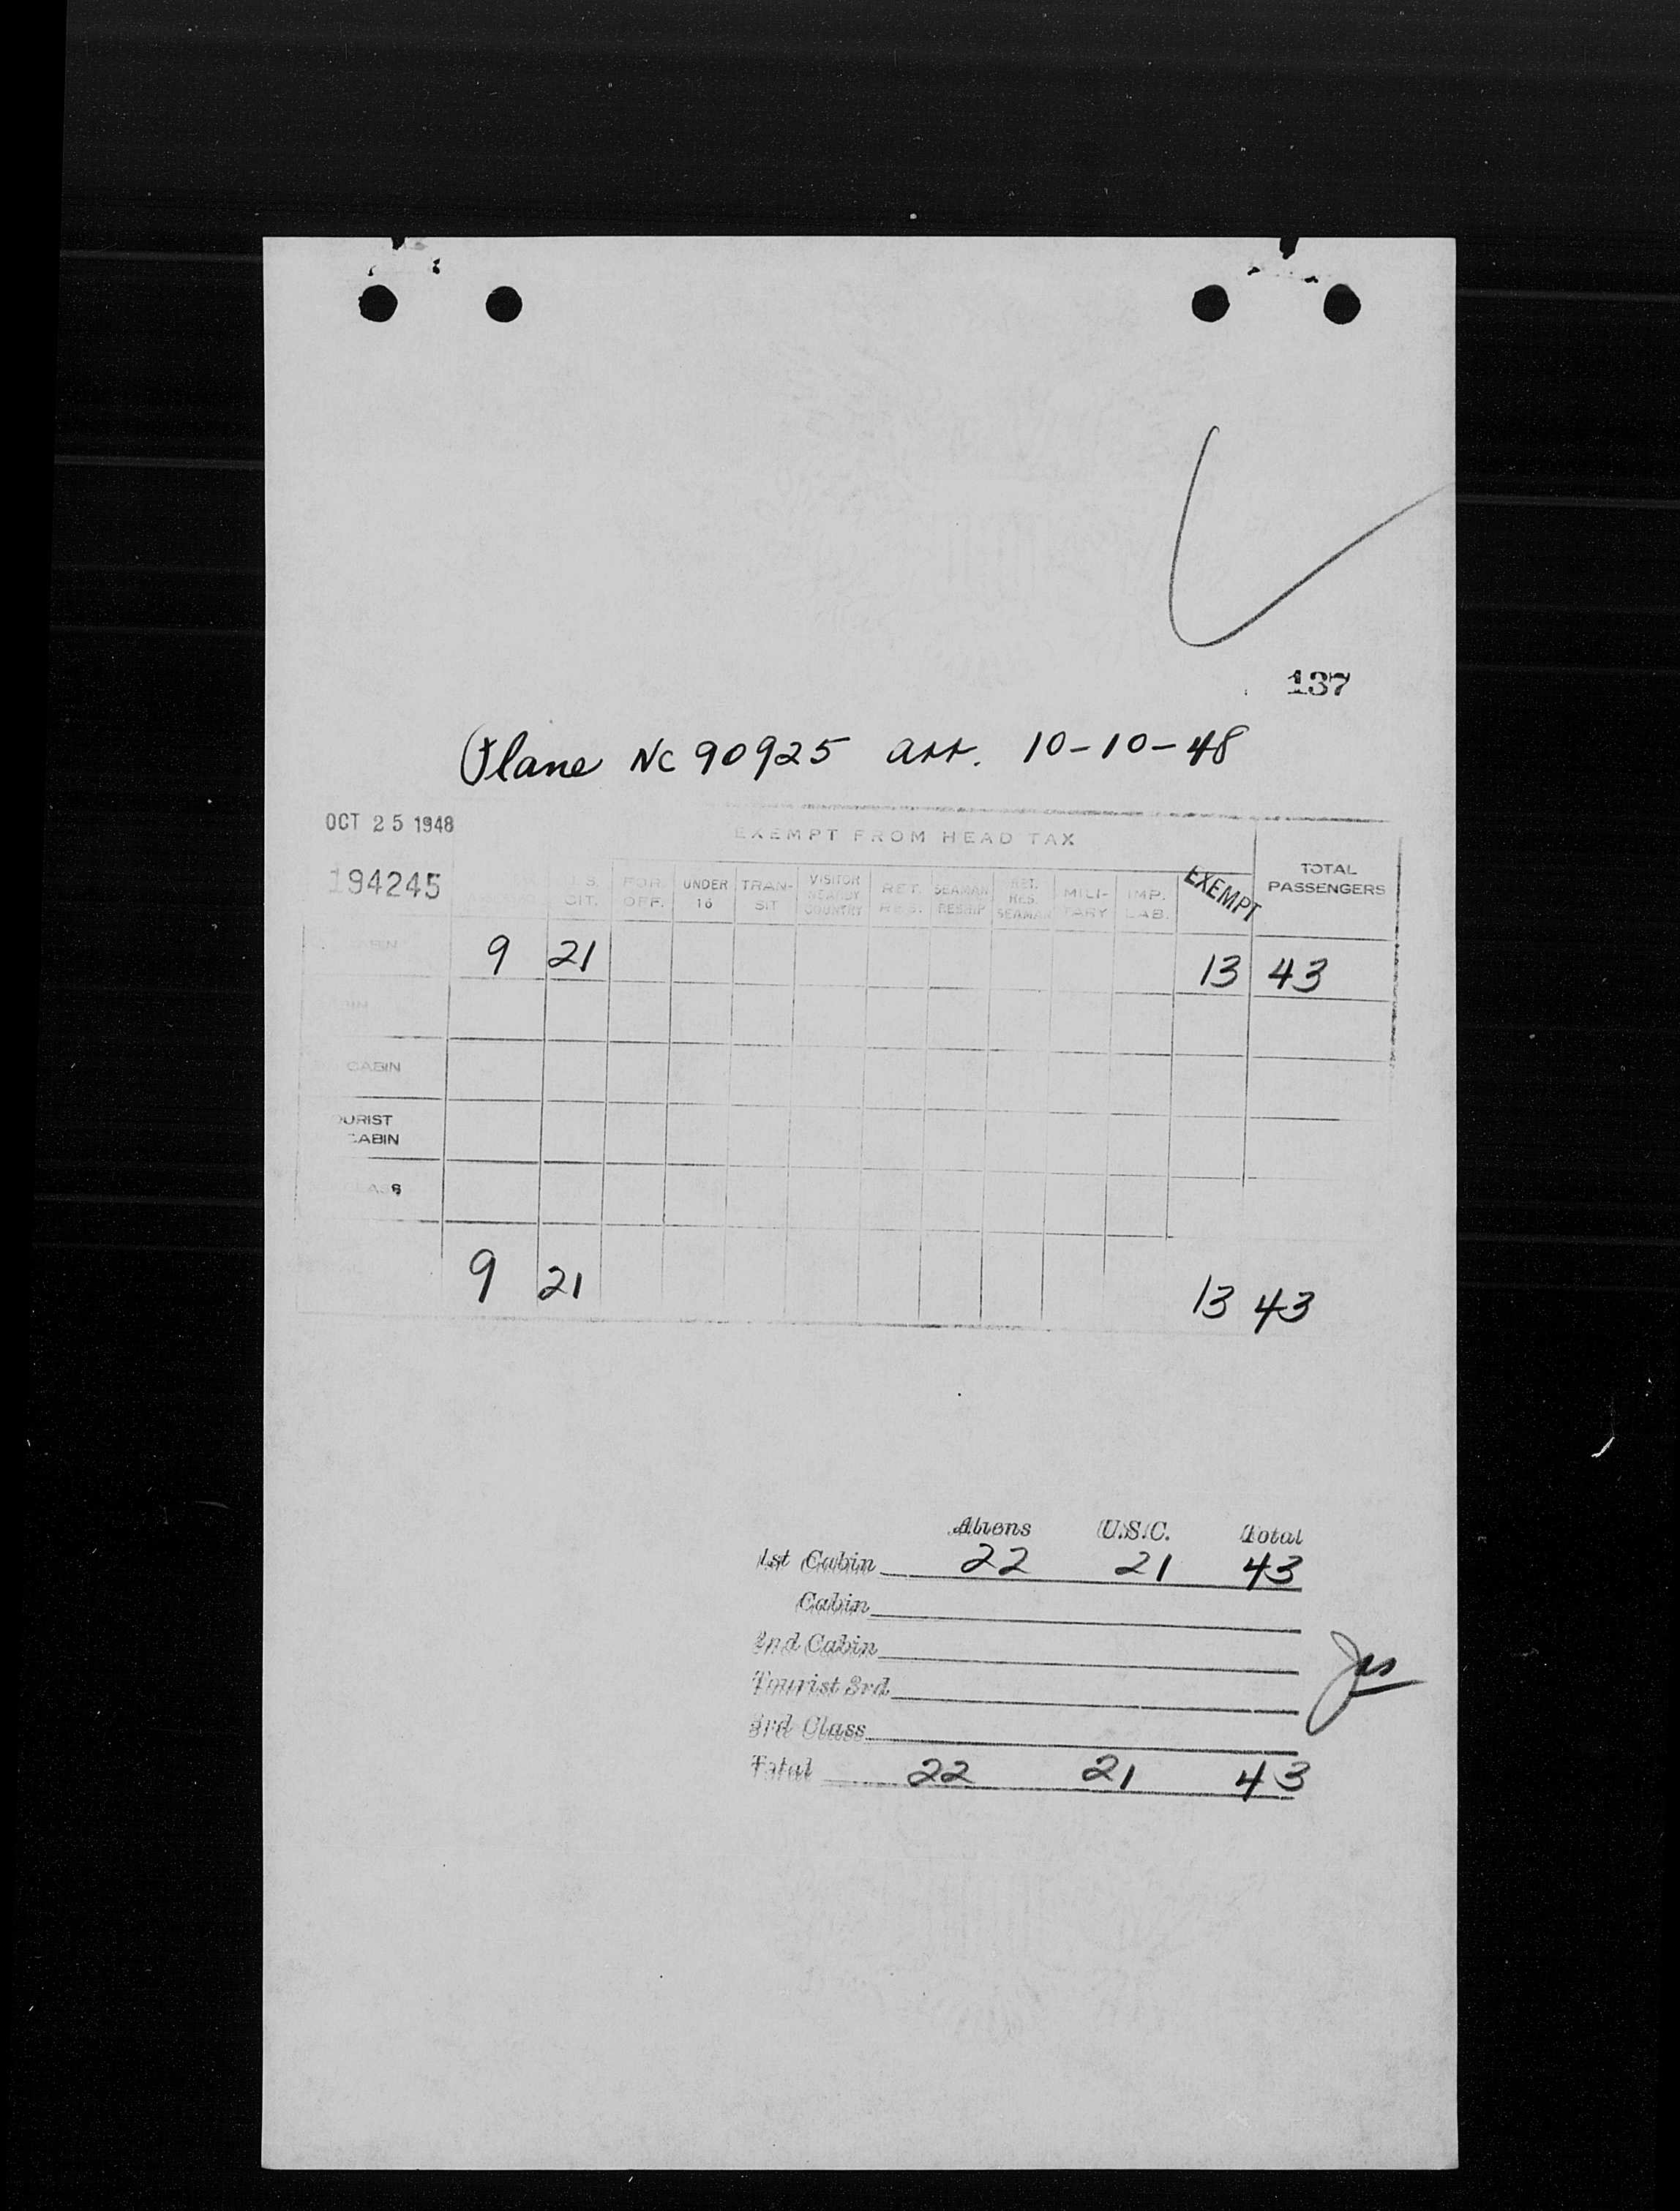 137
Plane NC 90925 arr. 10-10-48
OCT 25 1948
EXEMPT FROM HEAD TAX
194245
U.S. CIT. FOR. OFF. UNDER 16 TRAN- SIT VISITOR NEARBY COUNTRY RET. RES. SEAMAN RESHIP RET. RES. SEAMAN MILI- TARY IMP. LAB. EXEMPT TOTAL PASSENGERS
CABIN 9 21 13 43
CABIN
TOURIST
CABIN
CLASS
9 21 13 43
Aliens U.S.C. Total
1st Cabin 22 21 43
Cabin
2nd Cabin
Tourist 3rd
3rd Class
Total 22 21 43